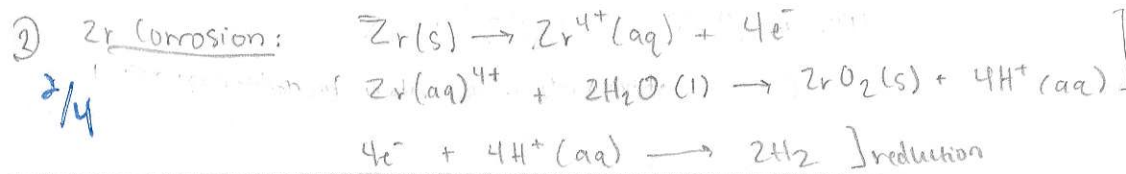 2) Zr Corrosion: Zr(s) → Zr⁴⁺(aq) + 4e⁻
2/4 Zr(aq)⁴⁺ + 2H₂O (l) → ZrO₂(s) + 4H⁺(aq)
4e⁻ + 4H⁺(aq) → 2H₂ ] reduction